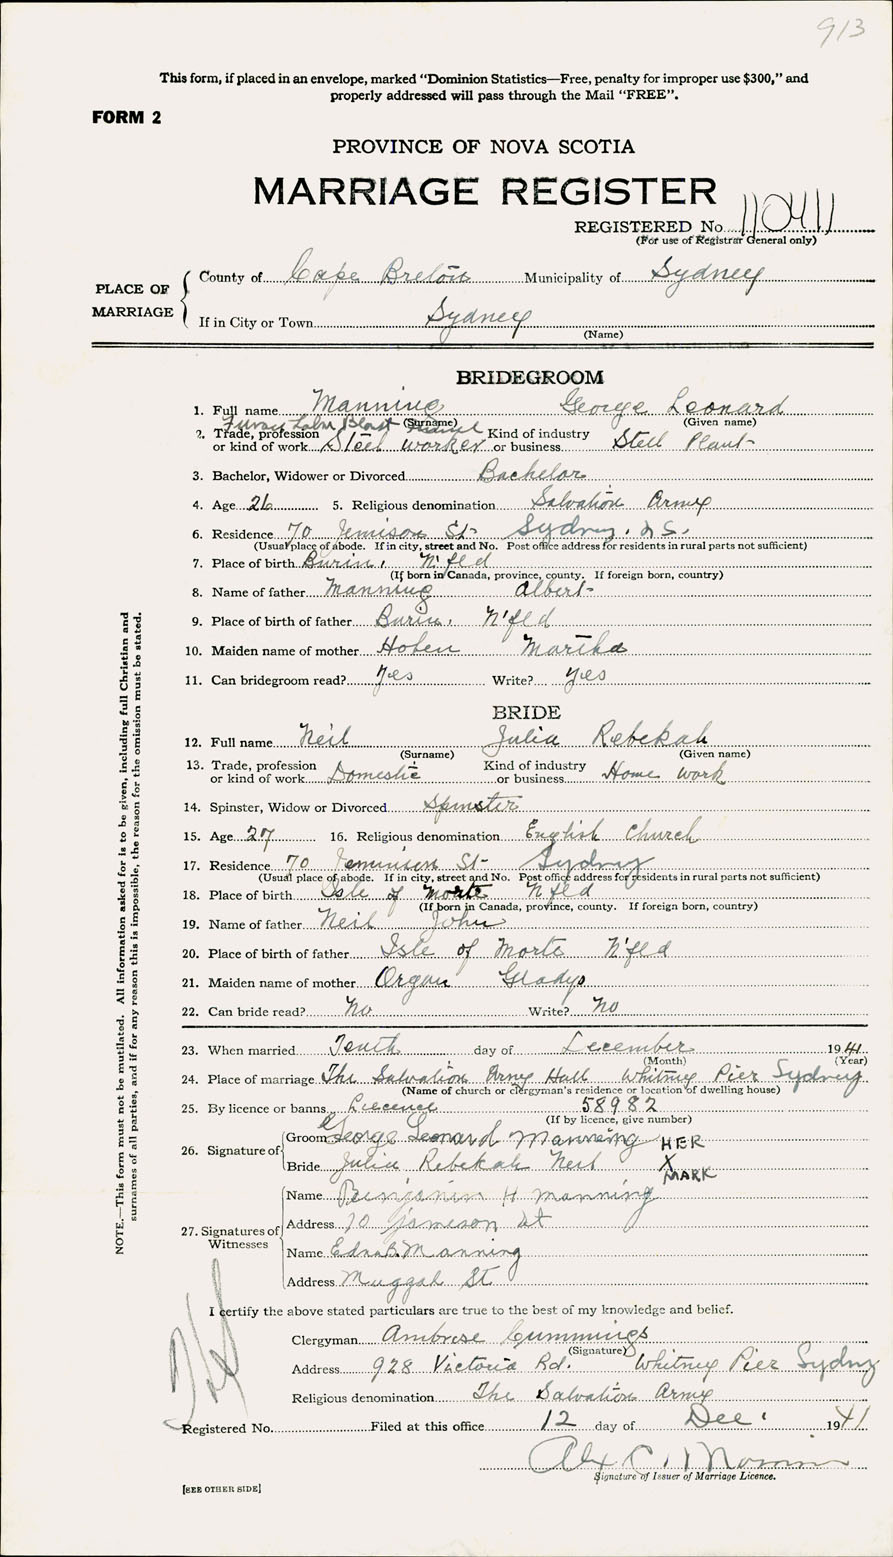 913
This form, if placed in an envelope, marked “Dominion Statistics—Free, penalty for improper use $300,” and
properly addressed will pass through the Mail “FREE”.
FORM 2
PROVINCE OF NOVA SCOTIA
MARRIAGE REGISTER
REGISTERED No. 110411
(For use of Registrar General only)
PLACE OF MARRIAGE
County of Cape Breton Municipality of Sydney
If in City or Town Sydney
(Name)
BRIDEGROOM
1. Full name Manning George Leonard
(Surname) (Given name)
Labr Blast
2. Trade, profession or kind of work Steel worker Kind of industry or business Steel Plant
3. Bachelor, Widower or Divorced Bachelor
4. Age 26 5. Religious denomination Salvation Army
6. Residence 70 Jemison St Sydney, N.S.
(Usual place of abode. If in city, street and No. Post office address for residents in rural parts not sufficient)
7. Place of birth Burin, N'fld
(If born in Canada, province, county. If foreign born, country)
8. Name of father Manning Albert
9. Place of birth of father Burin, N'fld
10. Maiden name of mother Hoben Martha
11. Can bridegroom read? Yes Write? yes
BRIDE
12. Full name Neil Julia Rebekah
(Surname) (Given name)
13. Trade, profession or kind of work Domestic Kind of industry or business Home work
14. Spinster, Widow or Divorced Spinster
15. Age 27 16. Religious denomination English Church
17. Residence 70 Jemison St Sydney
(Usual place of abode. If in city, street and No. Post office address for residents in rural parts not sufficient)
18. Place of birth Isle of Morte Nfld
(If born in Canada, province, county. If foreign born, country)
19. Name of father Neil John
20. Place of birth of father Isle of Morte N'fld
21. Maiden name of mother Organ Gladys
22. Can bride read? No Write? No
23. When married Tenth day of December 1941
(Month) (Year)
24. Place of marriage The Salvation Army Hall Whitney Pier Sydney
(Name of church or clergyman's residence or location of dwelling house)
25. By licence or banns Liecence 58982
(If by licence, give number)
26. Signature of
Groom George Leonard Manning HER
Bride Julia Rebekah Neil X
MARK
27. Signatures of Witnesses
Name Benjamin H Manning
Address 70 Jameson St
Name Edna B. Manning
Address Muggah St
I certify the above stated particulars are true to the best of my knowledge and belief.
Clergyman Ambrose Cummings
(Signature)
Address 928 Victoria Rd. Whitney Pier Sydney
Religious denomination The Salvation Army
Registered No. Filed at this office 12 day of Dec. 1941
Signature of Issuer of Marriage Licence.
[SEE OTHER SIDE]
NOTE.—This form must not be mutilated. All information asked for is to be given, including full Christian and
surnames of all parties, and if for any reason this is impossible, the reason for the omission must be stated.